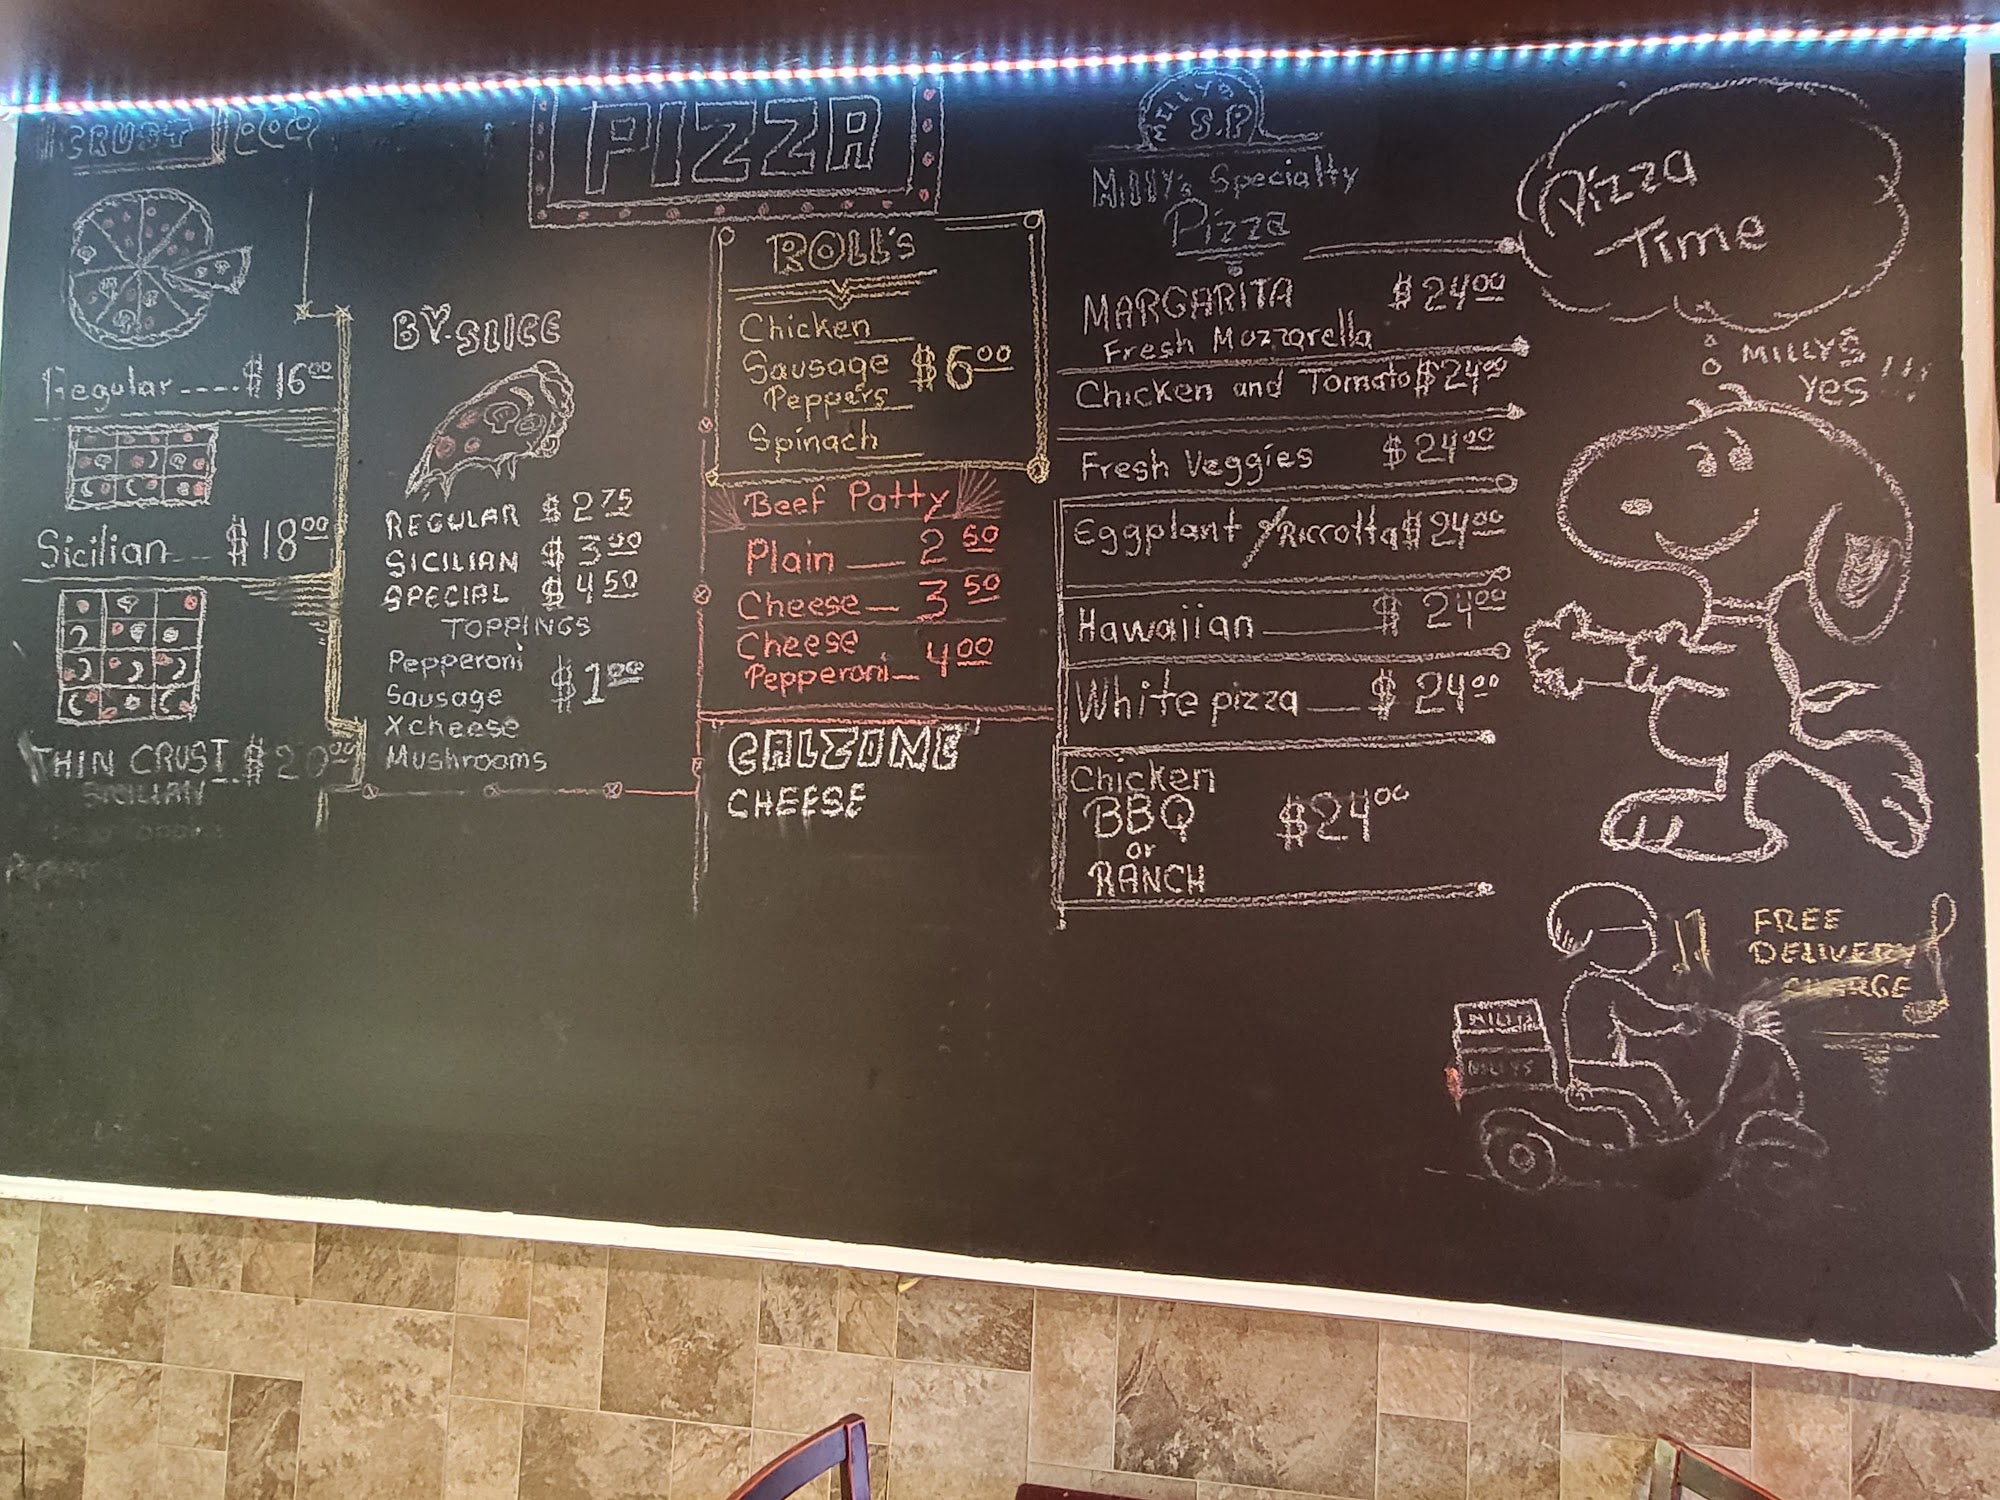 CRUSTY LOCO
Regular ---- $16.00
Sicilian --- $18.00
THIN CRUST $20.00
SICILIAN
PIZZA
BY-SLICE
REGULAR $2.75
SICILIAN $3.00
SPECIAL $4.50
TOPPINGS
Pepperoni
Sausage $1.00
X cheese
Mushrooms
ROLL's
Chicken
Sausage $6.00
Peppers
Spinach
Beef Patty
Plain 2.50
Cheese 3.50
Cheese
Pepperoni 4.00
CALZONE
CHEESE
MILLY'S
S.P
MillY's Specialty
Pizza
MARGARITA $24.00
Fresh Mozzarella
Chicken and Tomato $24.00
Fresh Veggies $24.00
Eggplant / Riccotta $24.00
Hawaiian $24.00
White pizza $24.00
Chicken
BBQ $24.00
or
RANCH
Pizza
Time
MILLYS
Yes !!!
FREE
DELIVERY
CHARGE
MILLYS
MILLYS